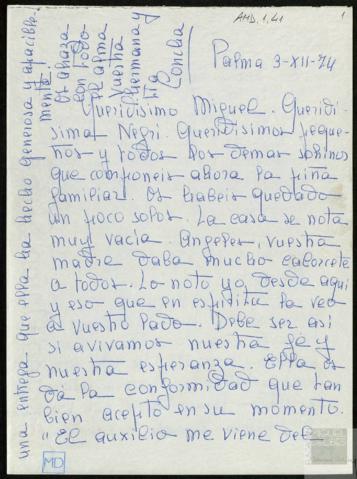 AMD. 1, 41
1
Palma 3-XII-74
Queridisimo Miguel. Queridi-
sima Negri. Queridisimos peque-
ños y todos los demas sobrinos
que componeis ahora la piña
familiar. Os habeis quedado
un poco solos. La casa se nota
muy vacia. Angeles, vuestra
madre daba mucho calorcete
a todos. Lo noto yo desde aqui
y eso que en espiritu la veo
a vuestro lado. Debe ser asi
si avivamos nuestra fe y
nuestra esperanza. Ella os
dá la conformidad que tan
bien acepto en su momento.
"El auxilio me viene del
una entrega que ella ha hecho generosa y apacible-
mente.
Os abraza
con todo
el alma
vuestra
hermana y
tia
Concha
MD